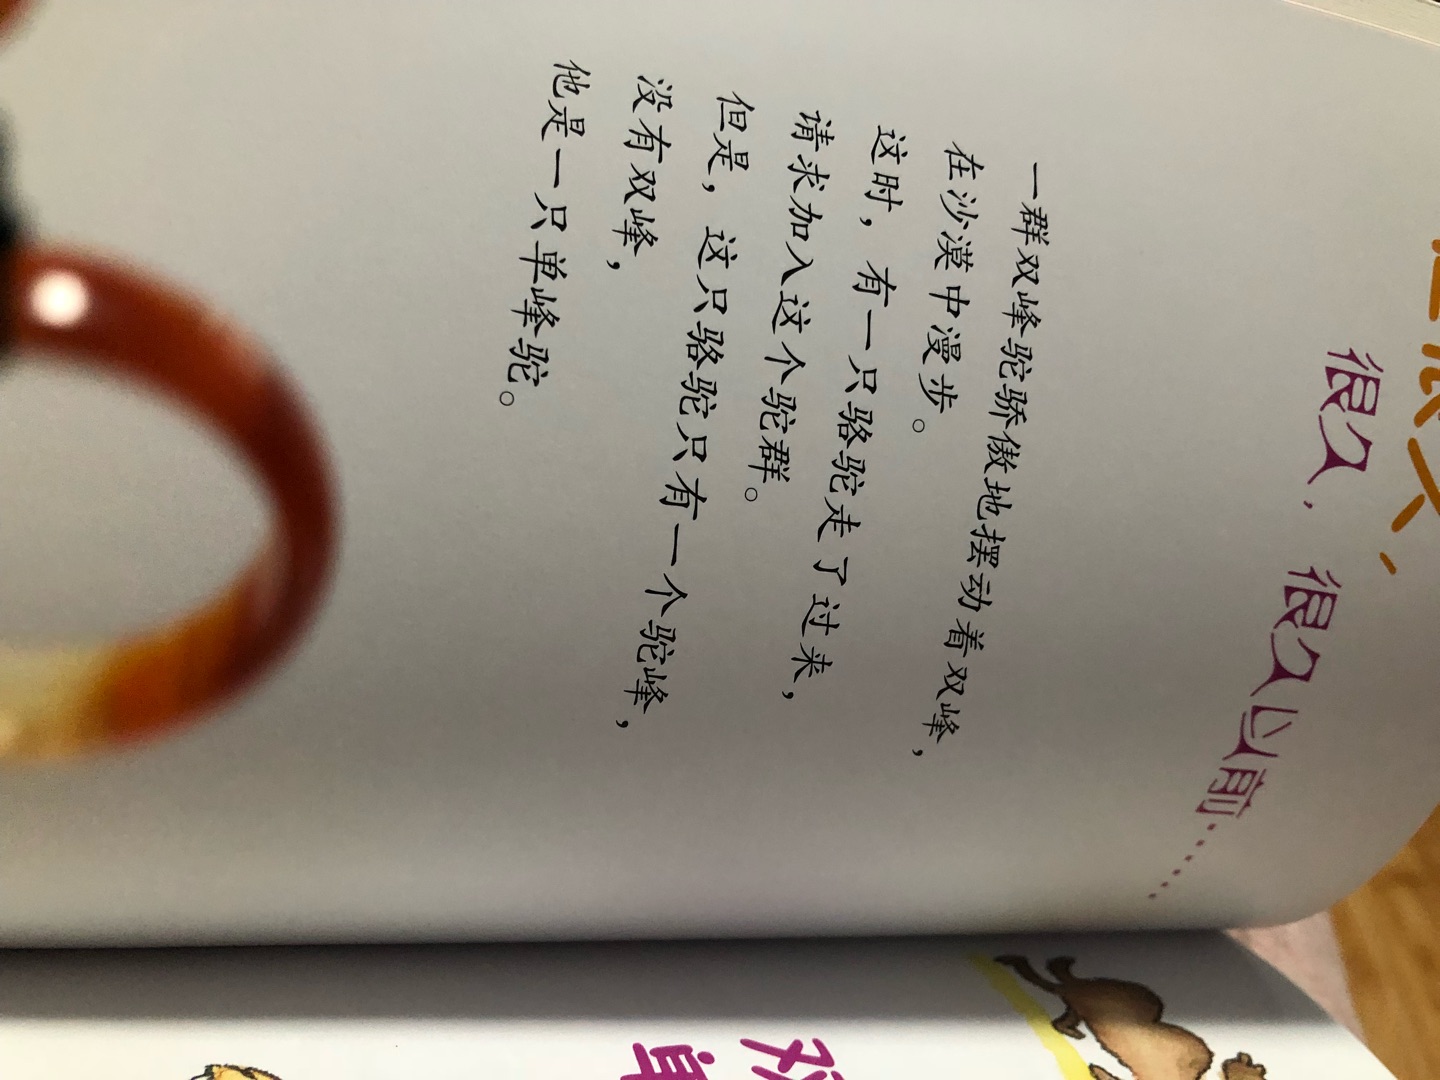 很久，很久以前……
一群双峰驼骄傲地摆动着双峰，
在沙漠中漫步。
这时，有一只骆驼走了过来，
请求加入这个驼群。
但是，这只骆驼只有一个驼峰，
没有双峰，
他是一只单峰驼。